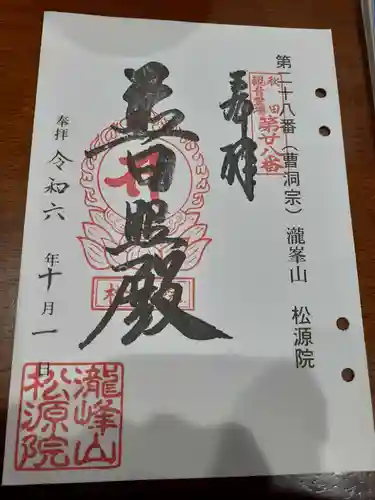 第二十八番（曹洞宗）瀧峯山　松源院
秋田
観音霊場
第廿八番
奉拝
普日照殿
奉拝
令和六年十月一日
瀧峰山
松源院